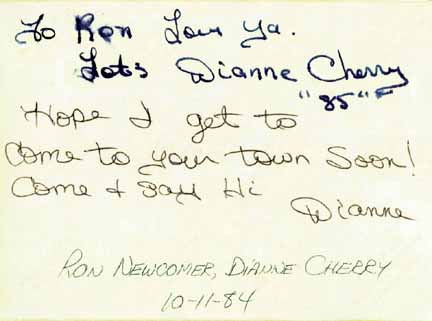 To Ron Love ya.
Lots Dianne Cherry
"85"
Hope I get to
Come to your town Soon!
Come & Say Hi
Dianne
RON NEWCOMER, DIANNE CHERRY
10-11-84